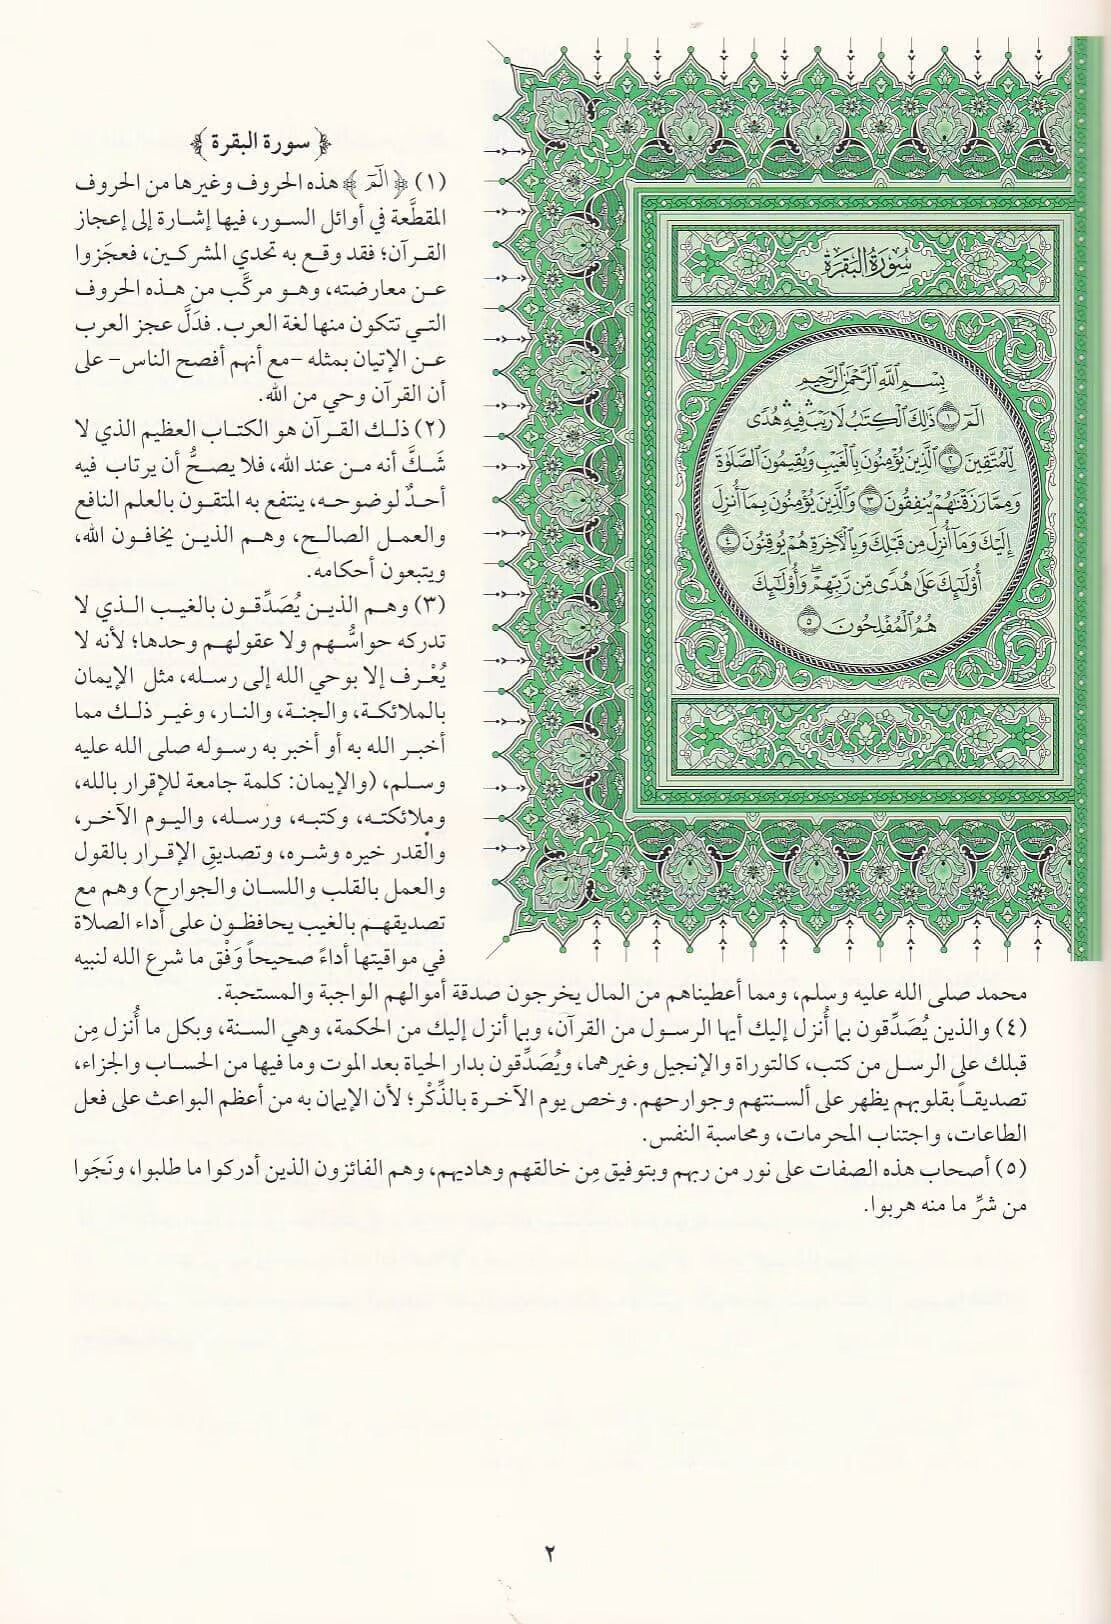 سُورَةُ البَقَرَةِ
بِسْمِ ٱللَّهِ ٱلرَّحْمَٰنِ ٱلرَّحِيمِ
الٓمٓ ١ ذَٰلِكَ ٱلْكِتَٰبُ لَا رَيْبَ ۛ فِيهِ ۛ هُدًى
لِّلْمُتَّقِينَ ٢ ٱلَّذِينَ يُؤْمِنُونَ بِٱلْغَيْبِ وَيُقِيمُونَ ٱلصَّلَوٰةَ
وَمِمَّا رَزَقْنَٰهُمْ يُنفِقُونَ ٣ وَٱلَّذِينَ يُؤْمِنُونَ بِمَآ أُنزِلَ
إِلَيْكَ وَمَآ أُنزِلَ مِن قَبْلِكَ وَبِٱلْأَخِرَةِ هُمْ يُوقِنُونَ ٤
أُوْلَٰٓئِكَ عَلَىٰ هُدًى مِّن رَّبِّهِمْ ۖ وَأُوْلَٰٓئِكَ
هُمُ ٱلْمُفْلِحُونَ ٥
﴿سورة البقرة﴾
(١) ﴿الٓمٓ﴾ هذه الحروف وغيرها من الحروف
المقطَّعة في أوائل السور، فيها إشارة إلى إعجاز
القرآن؛ فقد وقع به تحدي المشركين، فعجَزوا
عن معارضته، وهو مركَّب من هذه الحروف
التي تتكون منها لغة العرب. فدَلَّ عجز العرب
عن الإتيان بمثله -مع أنهم أفصح الناس- على
أن القرآن وحي من الله.
(٢) ذلك القرآن هو الكتاب العظيم الذي لا
شَكَّ أنه من عند الله، فلا يصحُّ أن يرتاب فيه
أحدٌ لوضوحه، ينتفع به المتقون بالعلم النافع
والعمل الصالح، وهم الذين يخافون الله،
ويتبعون أحكامه.
(٣) وهم الذين يُصَدِّقون بالغيب الذي لا
تدركه حواسُّهم ولا عقولهم وحدها؛ لأنه لا
يُعْرف إلا بوحي الله إلى رسله، مثل الإيمان
بالملائكة، والجنة، والنار، وغير ذلك مما
أخبر الله به أو أخبر به رسوله صلى الله عليه
وسلم، (والإيمان: كلمة جامعة للإقرار بالله،
وملائكته، وكتبه، ورسله، واليوم الآخر،
والقدر خيره وشره، وتصديقِ الإقرار بالقول
والعمل بالقلب واللسان والجوارح) وهم مع
تصديقهم بالغيب يحافظون على أداء الصلاة
في مواقيتها أداءً صحيحاً وَفْق ما شرع الله لنبيه
محمد صلى الله عليه وسلم، ومما أعطيناهم من المال يخرجون صدقة أموالهم الواجبة والمستحبة.
(٤) والذين يُصَدِّقون بما أُنزل إليك أيها الرسول من القرآن، وبما أنزل إليك من الحكمة، وهي السنة، وبكل ما أُنزل مِن
قبلك على الرسل من كتب، كالتوراة والإنجيل وغيرهما، ويُصَدِّقون بدار الحياة بعد الموت وما فيها من الحساب والجزاء،
تصديقاً بقلوبهم يظهر على ألسنتهم وجوارحهم. وخص يوم الآخرة بالذِّكْر؛ لأن الإيمان به من أعظم البواعث على فعل
الطاعات، واجتناب المحرمات، ومحاسبة النفس.
(٥) أصحاب هذه الصفات على نور من ربهم وبتوفيق مِن خالقهم وهاديهم، وهم الفائزون الذين أدركوا ما طلبوا، ونَجَوا
من شرِّ ما منه هربوا.
٢